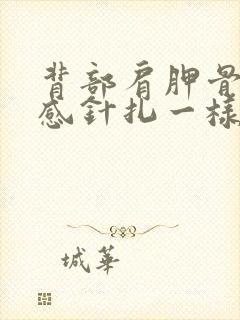 背部肩胛骨
感針扎一樣
城華